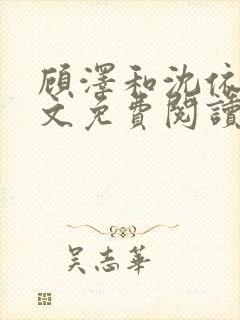 顾澤和沈依
文免費閱讀
吴志華